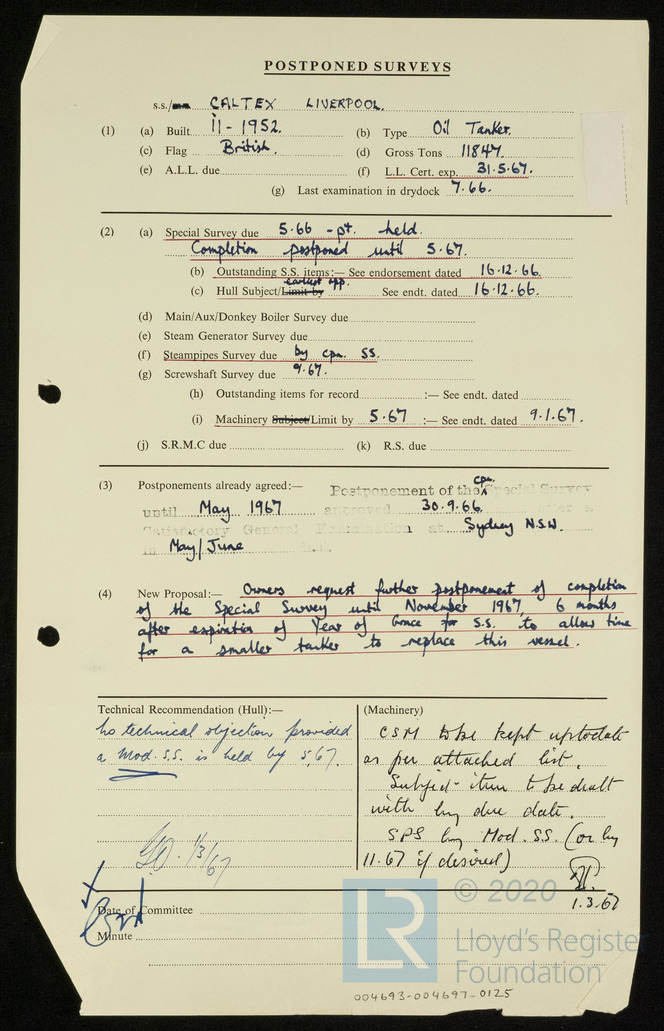 POSTPONED SURVEYS
s.s./ CALTEX LIVERPOOL.
(1) (a) Built 11 - 1952. (b) Type Oil Tanker.
(c) Flag British. (d) Gross Tons 11847.
(e) A.L.L. due (f) L.L. Cert. exp. 31.5.67.
(g) Last examination in drydock 7.66.
(2) (a) Special Survey due 5.66 - pt. held.
Completion postponed until 5.67.
(b) Outstanding S.S. items:— See endorsement dated 16.12.66.
(c) Hull Subject/Limit by earliest opp. See endt. dated 16.12.66.
(d) Main/Aux/Donkey Boiler Survey due
(e) Steam Generator Survey due
(f) Steampipes Survey due by cpn. SS.
(g) Screwshaft Survey due 9.67.
(h) Outstanding items for record :— See endt. dated
(i) Machinery Subject/Limit by 5.67 :— See endt. dated 9.1.67.
(j) S.R.M.C due (k) R.S. due
(3) Postponements already agreed:— Postponement of the cpn. Special Survey
until May 1967 approved 30.9.66. after a
Satisfactory General Examination at Sydney N.S.W.
in May/June
(4) New Proposal:— Owners request further postponement of completion
of the Special Survey until November 1967, 6 months
after expiration of Year of Grace for S.S. to allow time
for a smaller tanker to replace this vessel.
Technical Recommendation (Hull):—
No technical objection provided
a Mod. S.S. is held by 5.67.
1/3/67
(Machinery)
CSM to be kept up to date
as per attached list.
Subject item to be dealt
with by due date.
SPS by Mod. SS. (or by
11.67 if desired)
1.3.67
Date of Committee
Minute
© 2020
LR
Lloyd's Register
Foundation
004693-004697-0125